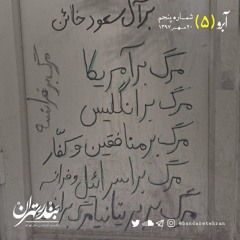 آبرو (۵) شماره پنجم
۲۰ مهر ۱۳۹۷
بر آل سعود خائن
مرگ بر آمریکا
مرگ بر انگلیس
مرگ بر منافقین و کفّار
مرگ بر اسرائیل و فرانسه
مرگ بر بریتانیا مرگ بر
مرگ بر فرانسه
بندر تهران
@bandaretehran